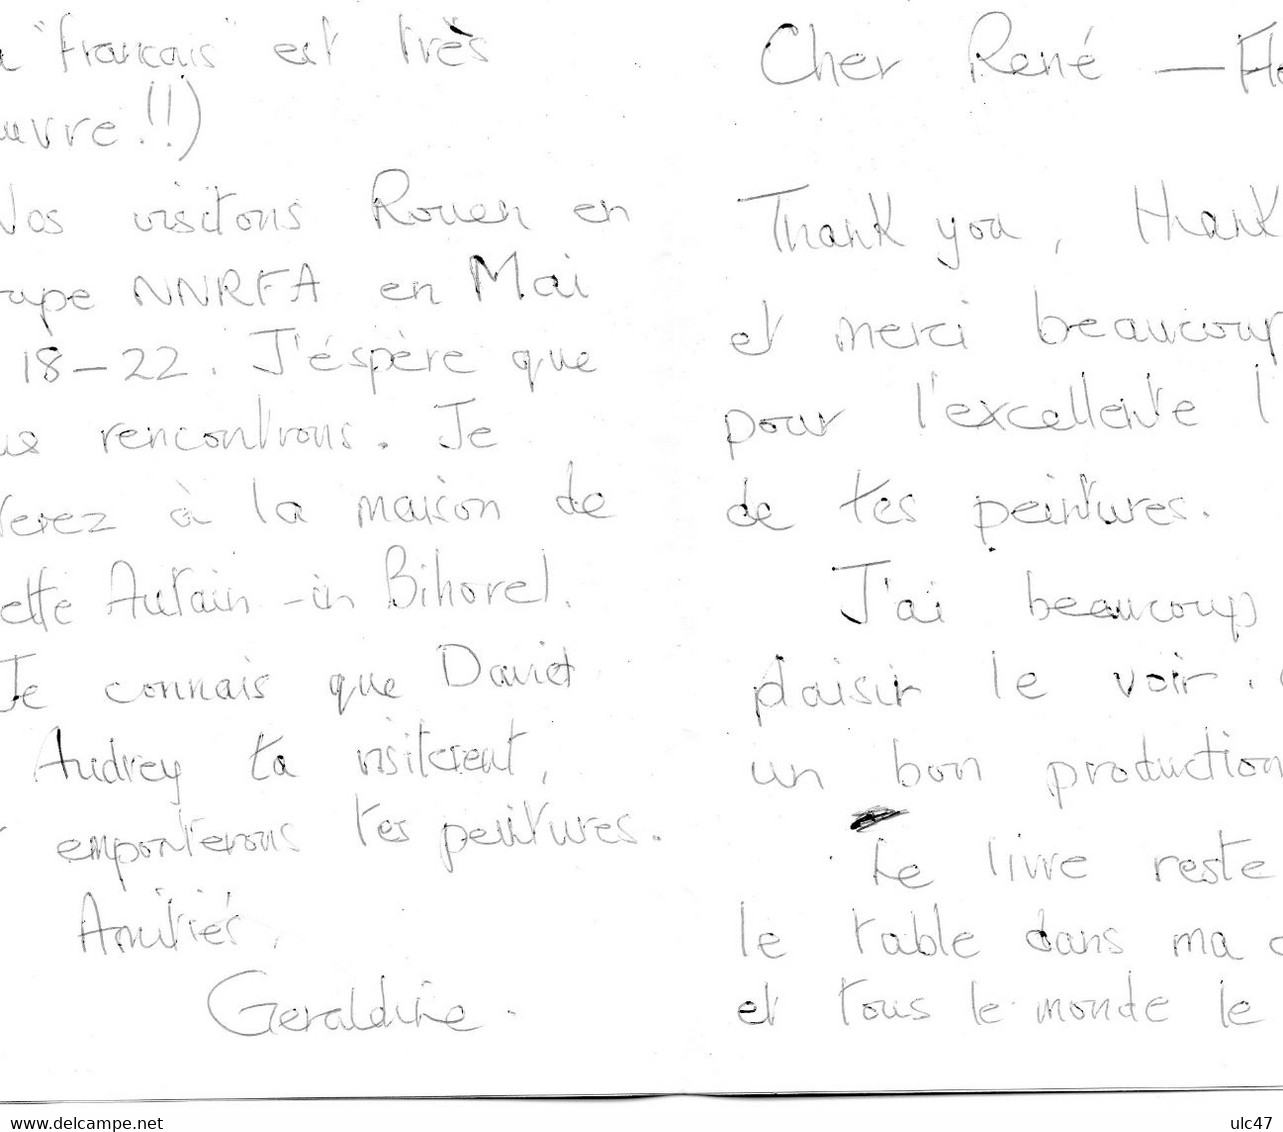 "francais" est très
uvre!!)
Nos visitons Rouen en
NNRFA en Mai
18-22. J'éspère que
rencontrons. Je
à la maison de
ette Autain - in Bihorel.
Je connais que David
Audrey ta visiterent,
emponterons tes peintures.
Amitiés,
Geraldine.
Cher René —
Thank you, thank
et merci beaucoup
pour l'excellente l
de tes peintures.
J'ai beaucoup
plaisir le voir.
un bon production
Le livre reste
le table dans ma
et tous le monde le
www.delcampe.net
ulc47